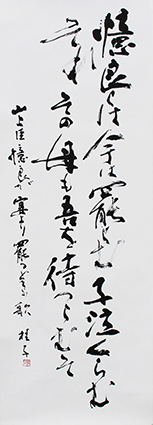 憶良らは今は罷らむ子泣くらむ
それその母も吾を待つらむそ
山上臣憶良が宴より罷るときの歌 桂子